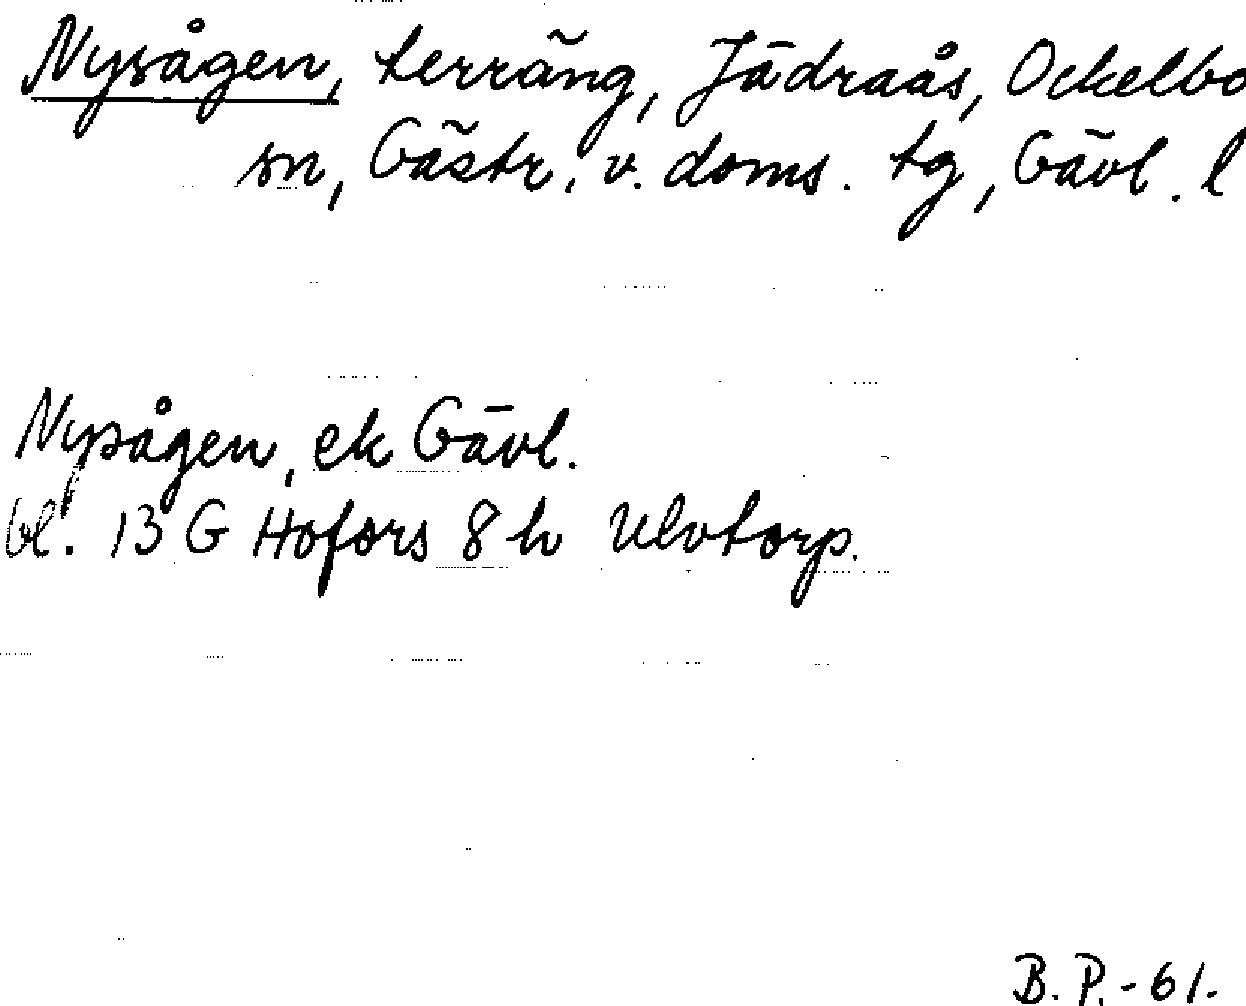 Nysågen, terräng, Jädraås, Ockelbo
sn, Gästr. v. doms. tg, Gävl. l
Nysågen, ek Gävl.
bl. 13 G Hofors 8 h Ulvtorp.
B. P. - 61.